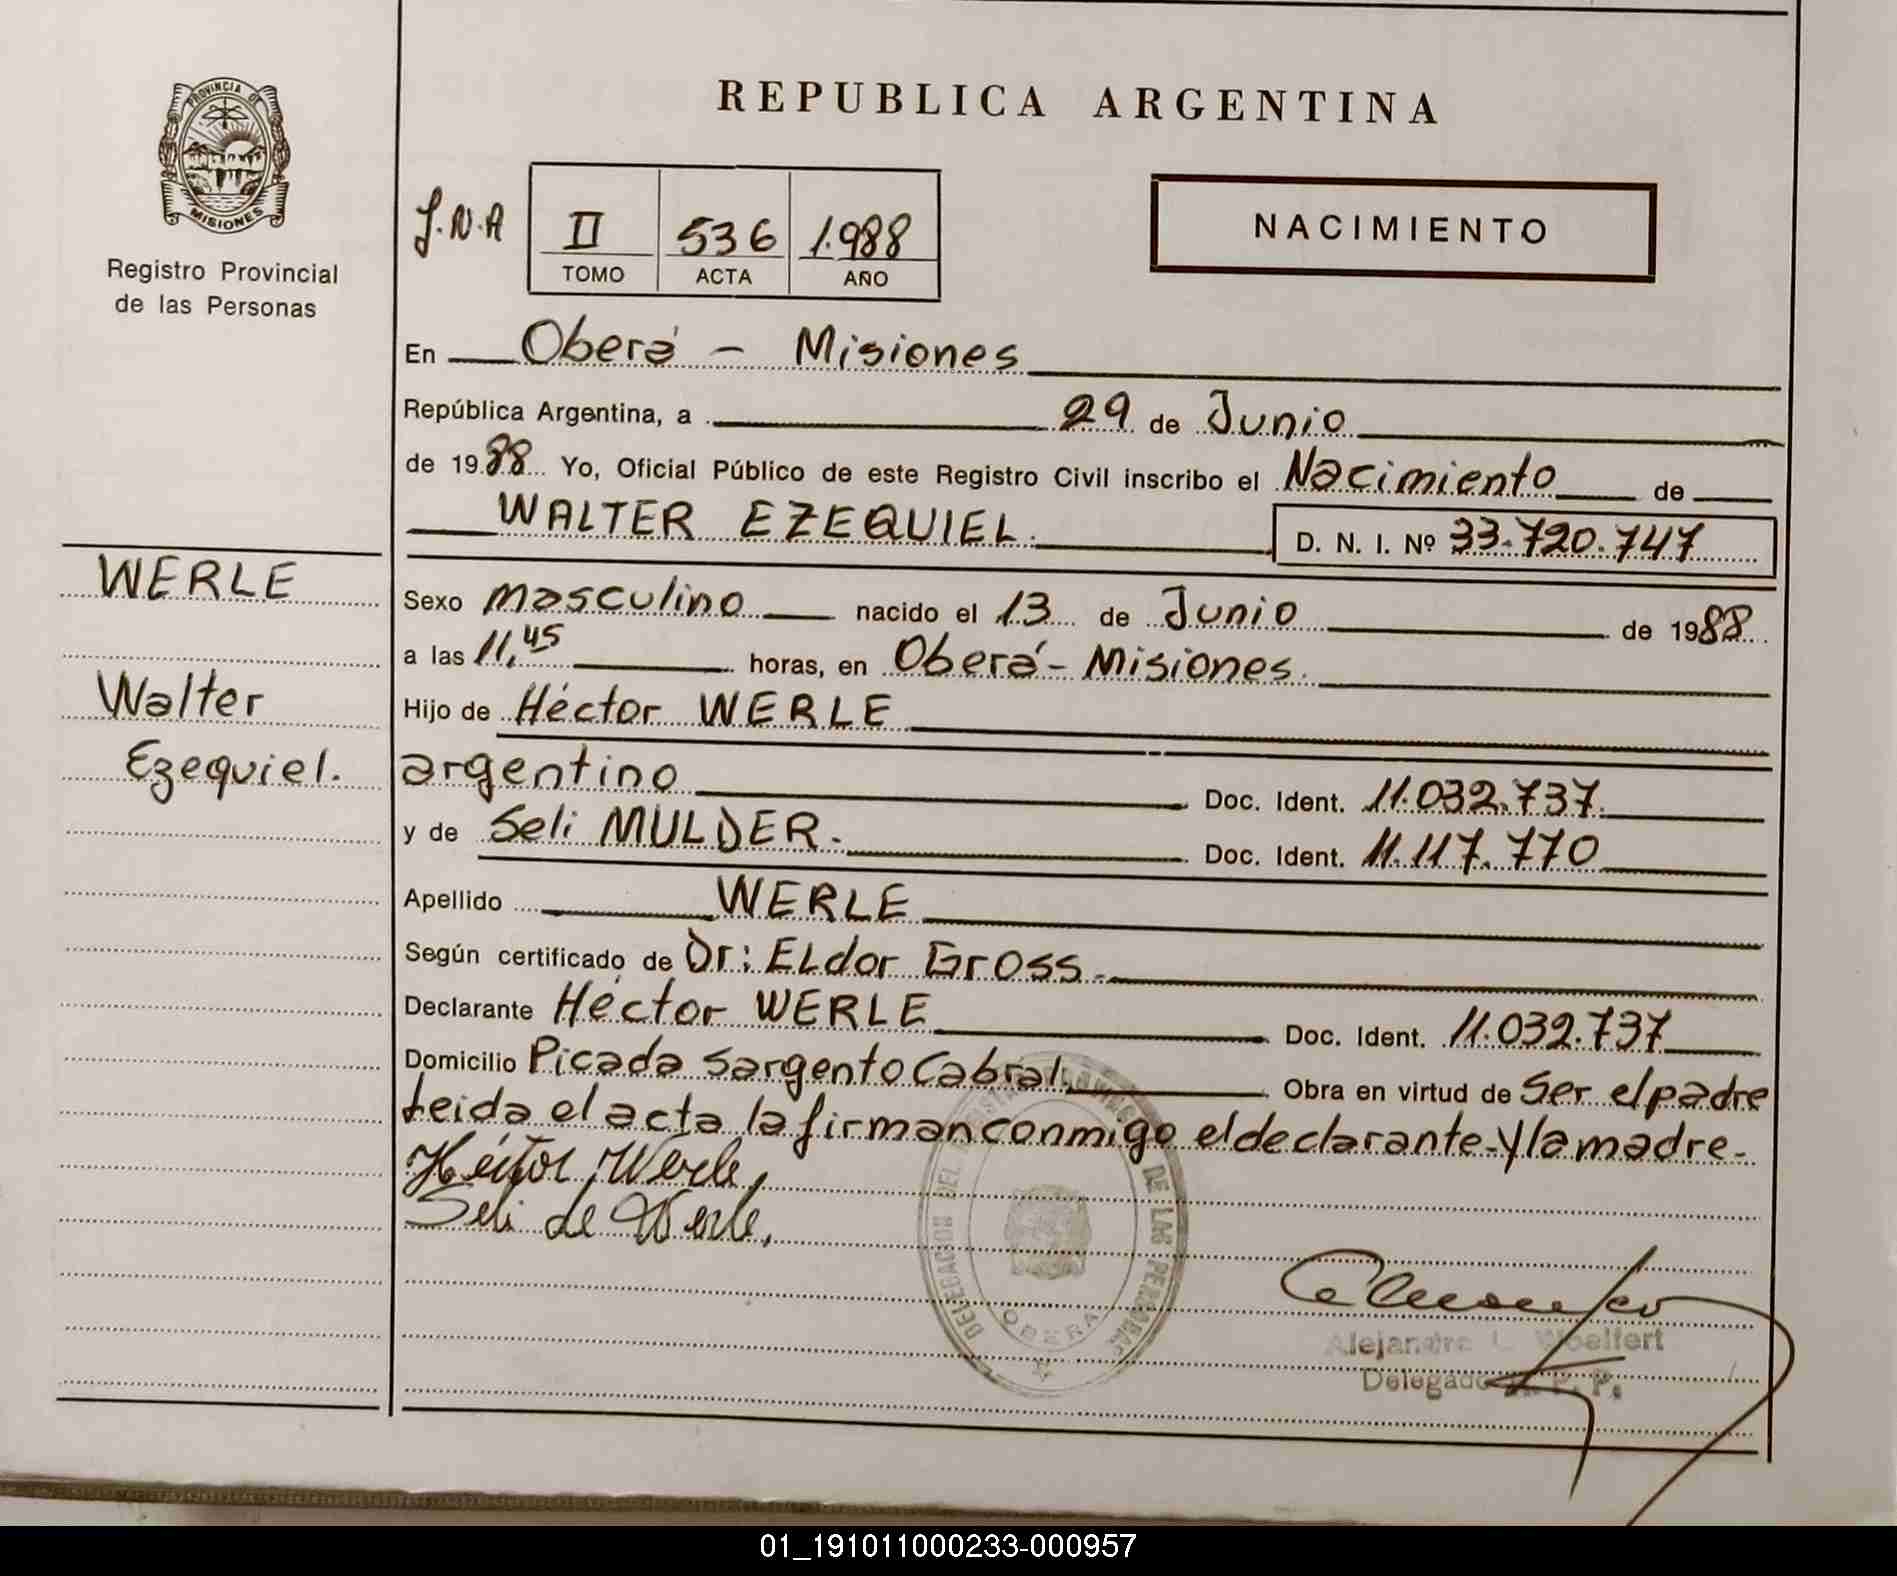 PROVINCIA DE
MISIONES
Registro Provincial
de las Personas
REPUBLICA ARGENTINA
J.N.A II 536 1.988
TOMO ACTA AÑO
NACIMIENTO
En Oberá - Misiones
República Argentina, a 29 de Junio
de 1988 Yo, Oficial Público de este Registro Civil inscribo el Nacimiento de
WALTER EZEQUIEL. D. N. I. Nº 33.720.747
WERLE
Walter
Ezequiel.
Sexo masculino nacido el 13 de Junio de 1988
a las 11,45 horas, en Oberá - Misiones.
Hijo de Héctor WERLE
argentino Doc. Ident. 11.032.737.
y de Seli MULDER. Doc. Ident. 11.117.770
Apellido WERLE
Según certificado de Dr: ELdor Gross.
Declarante Héctor WERLE Doc. Ident. 11.032.737
Domicilio Picada Sargento Cabral. Obra en virtud de Ser el padre
Leida el acta la firman conmigo el declarante-y la madre-
Héctor Werle,
Seli de Werle,
DELEGACION DEL DE LAS PERSONAS
OBERA
Woelfert
Delegado R. P. P.
01_191011000233-000957